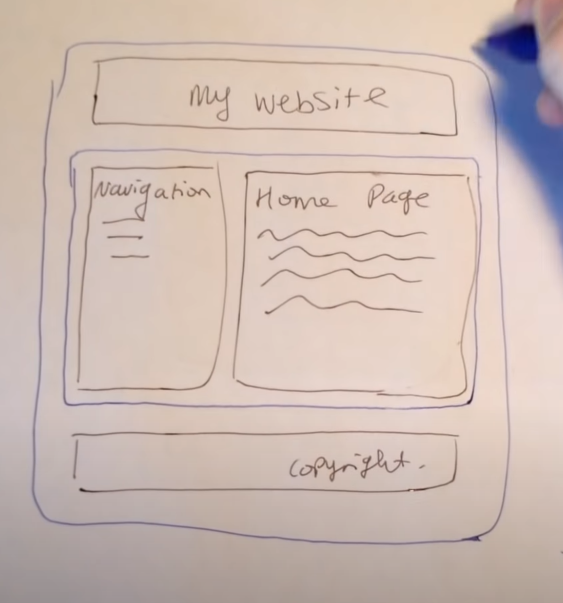 My website
Navigation
Home Page
Copyright.